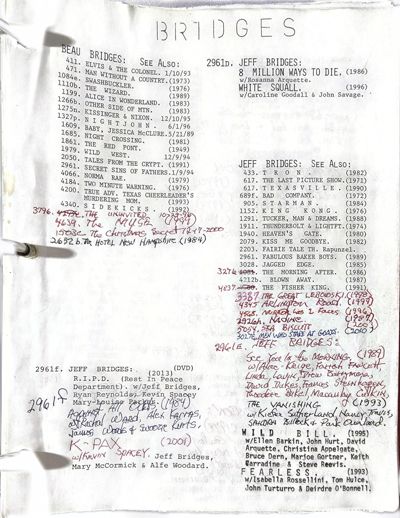 BRIDGES
BEAU BRIDGES: See Also:
411. ELVIS & THE COLONEL. 1/10/93
471. MAN WITHOUT A COUNTRY. (1973)
1084e. SWASHBUCKLER. (1976)
1110b. THE WIZARD. (1989)
1199. ALICE IN WONDERLAND. (1983)
1266b. OTHER SIDE OF MTN. (1983)
1275n. KISSINGER & NIXON. 12/10/95
1327p. NIGHTJOHN. 6/1/96
1609. BABY, JESSICA McCLURE. 5/21/89
1685. NIGHT CROSSING. (1981)
1861. THE RED PONY. (1949)
1979. WILD WEST. 12/9/94
2050. TALES FROM THE CRYPT. (1991)
2961. SECRET SINS OF FATHERS. 1/9/94
4066. NORMA RAE. (1979)
4184. TWO MINUTE WARNING. (1976)
4200. TRUE ADV. TEXAS CHEERLEADER'S
MURDERING MOM. (1993)
4340. SIDEKICKS. (1992)
3796. THE UNINVITED. 10-23-96
2652 b. The HOTEL NEW HAMPSHIRE (1984)
2961f. JEFF BRIDGES. (DVD)
(2013)
R.I.P.D. (Rest In Peace
Department). w/Jeff Bridges,
Ryan Reynolds, Kevin Spacey
Mary-Louise Parker.
2961f Against All Odds (1984)
w/Rachel Ward, Alex Karras,
James Woods & Swoosie Kurtz.
K-PAX (2001)
w/Kevin SPACEY. Jeff Bridges,
Mary McCormick & Alfe Woodard.
2961D. JEFF BRIDGES:
8 MILLION WAYS TO DIE. (1986)
w/Rosanna Arquette.
WHITE SQUALL. (1996)
w/Caroline Goodall & John Savage.
JEFF BRIDGES: See Also:
433. T R O N. (1982)
617. THE LAST PICTURE SHOW. (1971)
617. T E X A S V I L L E. (1990)
689f. BAD COMPANY. (1972)
905. S T A R M A N. (1984)
1152. KING KONG. (1976)
1744. TUCKER, MAN & DREAMS. (1988)
1911. THUNDERBOLT & LIGHTFT. (1974)
1940. HEAVEN'S GATE. (1980)
2079. KISS ME GOODBYE. (1982)
2203. FAIRIE TALE Th. Rapunzel.
2961. FABULOUS BAKER BOYS. (1989)
3028. JAGGED EDGE. (1985)
3276 THE MORNING AFTER. (1986)
4212b. BLOWN AWAY. (1987)
4237 THE FISHER KING. (1991)
3387 THE GREAT LEBOWSKI (1998)
4345 ARLINGTON ROAD (1999)
2926h. NADINE (1987)
5054 SEA BISCUIT
3027E MEN WHO STARE AT GOATS. (2010)
2961E. JEFF BRIDGES:
See You In the MORNING. (1989)
w/Alice Krige, Farrah Fawcett,
Linda Lavin, Drew Barrymore,
David Dukes, Frances Sternhagen,
Theodore Bikel, Macaulay CULKIN.
THE VANISHING (1993)
w/Kiefer Sutherland, Nancy Travis,
SANDRA BULLOCK & Park Overland.
W I L D B I L L. (1995)
w/Ellen Barkin, John Hurt, David
Arquette, Christina Appelgate,
Bruce Dern, Marjoe Gortner, Keith
Carradine & Steve Reevis.
F E A R L E S S. (1993)
w/Isabella Rossellini, Tom Hulce,
John Turturro & Deirdre O'Donnell.